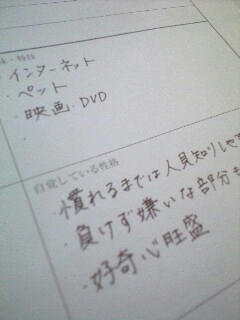 味・特技
・インターネット
・ペット
・映画・DVD
・
自覚している性格
・慣れるまでは人見知りしや
・負けず嫌いな部分も
・好奇心旺盛